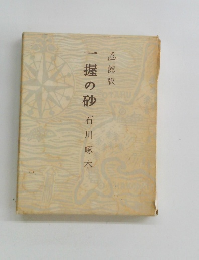 一握の砂
石川啄木